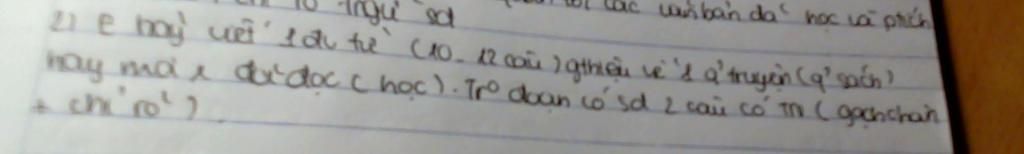 ngữ sd các văn bản đã học và phích
2) e hãy viết 1 đv từ (10 - 12 câu) gthiệu về 1 q' truyện (q' sách)
hay mà x đã đọc (học). Tr° đoạn có sd 2 câu có TN (gạch chân
+ chỉ rõ)